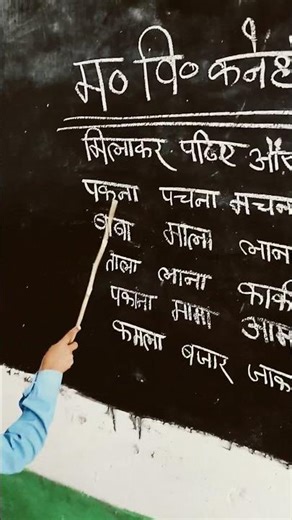 म० वि० कनेहटी
मिलाकर पढिए और
पकना पचना मचना
बाबा माला लाना
ताला लाना काकी
पकाना मामा आम
कमला बजार जाक